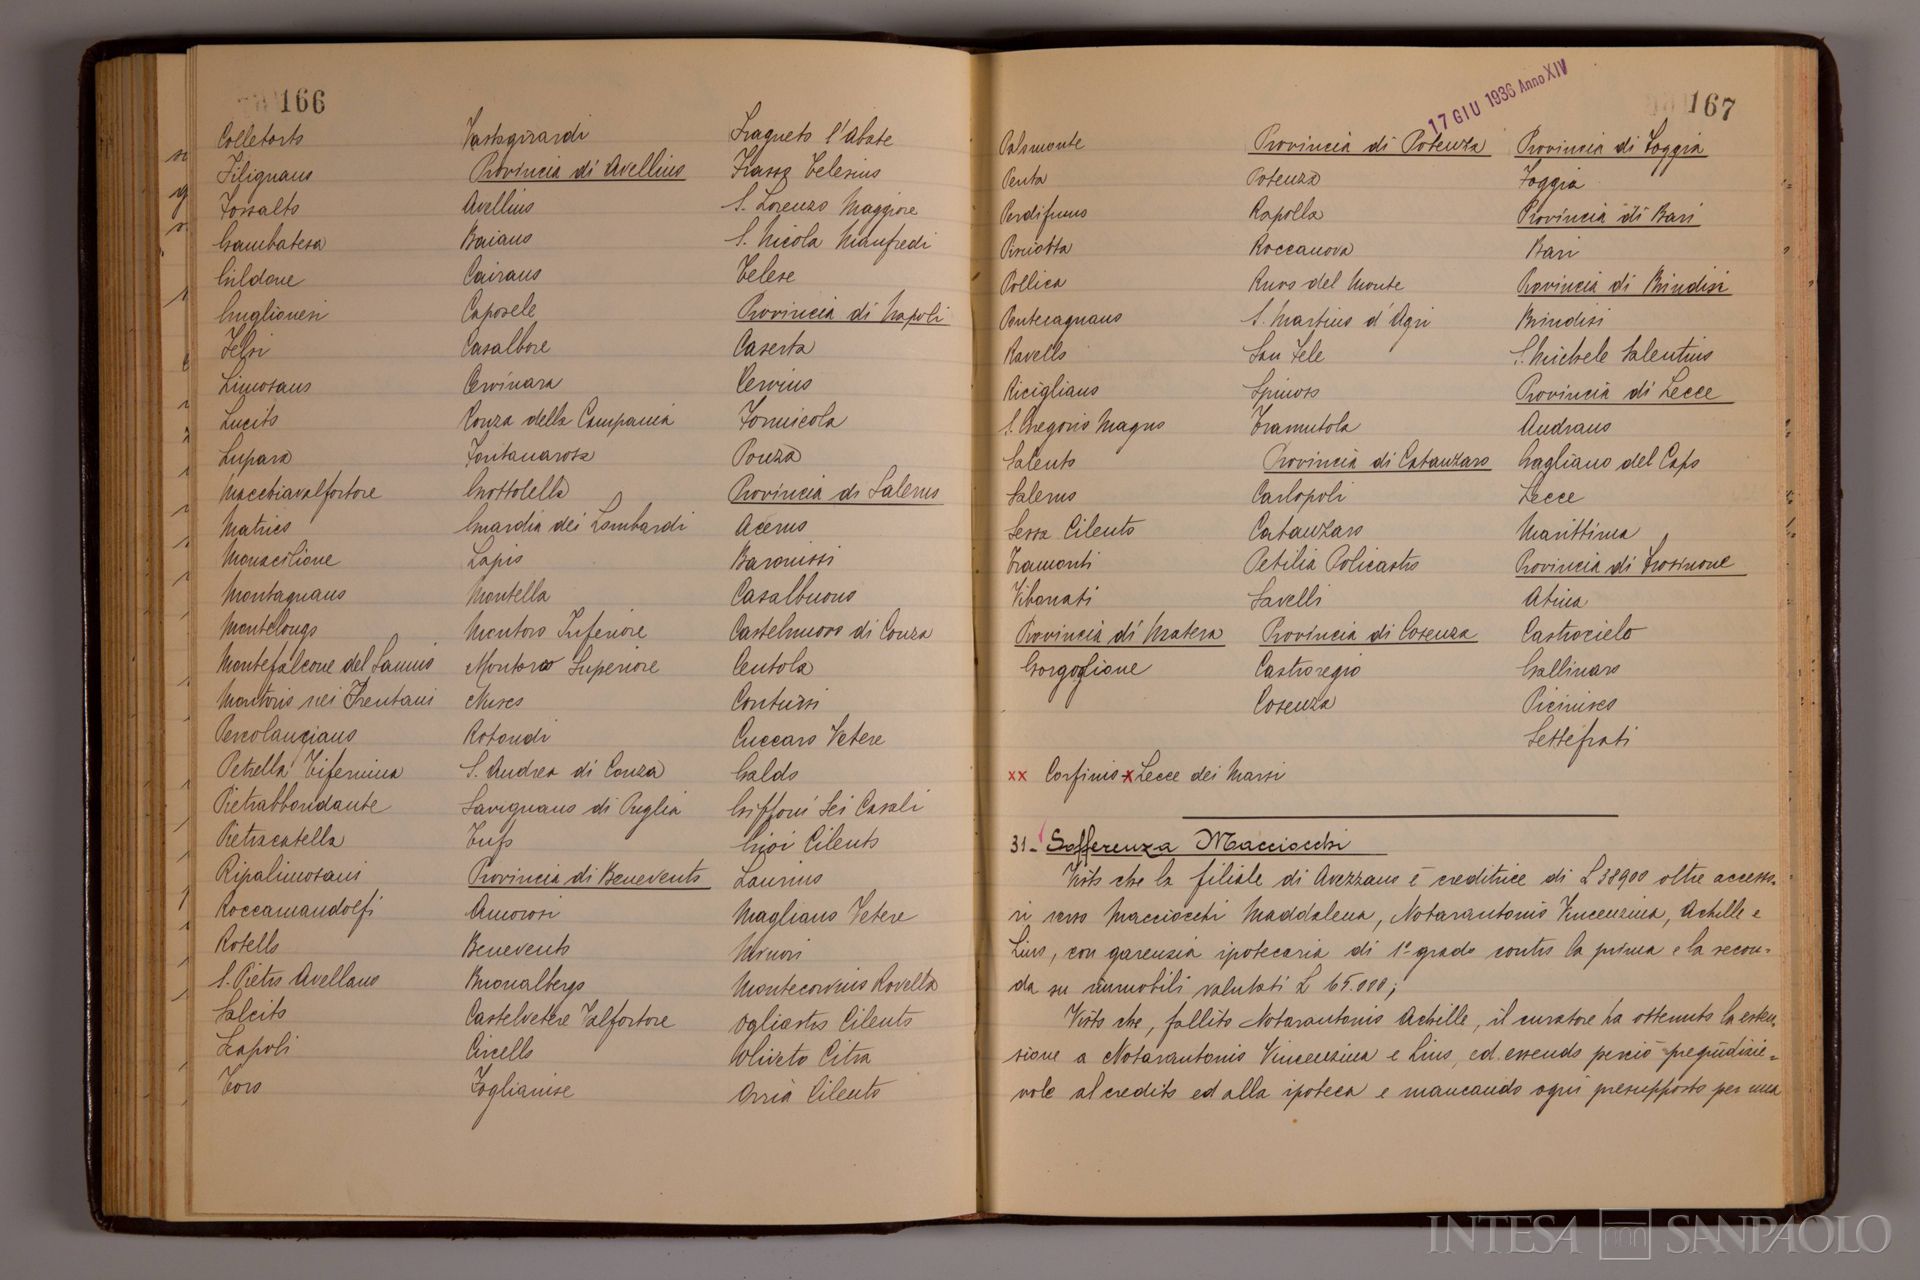 166
Colletorto
Filignano
Fossalto
Gambatesa
Gildone
Guglionesi
Jelsi
Limosano
Lucito
Lupara
Macchiavalfortore
Matrice
Monacilione
Montagnano
Montelongo
Montefalcone del Sannio
Montorio nei Frentani
Pescolanciano
Petrella Tifernina
Pietrabbondante
Pietracatella
Ripalimosani
Roccamandolfi
Rotello
S. Pietro Avellano
Salcito
Sapoli
Toro
Vastogirardi
Provincia di Avellino
Avellino
Baiano
Cairano
Caposele
Casalbore
Cervinara
Conza della Campania
Fontanarosa
Grottolella
Guardia dei Lombardi
Lapio
Montella
Montoro Inferiore
Montoro Superiore
Nusco
Rotondi
S. Andrea di Conza
Savignano di Puglia
Tufo
Provincia di Benevento
Amorosi
Benevento
Buonalbergo
Castelvetere Valfortore
Circello
Foglianise
Fragneto l'Abate
Frasso Telesino
S. Lorenzo Maggiore
S. Nicola Manfredi
Telese
Provincia di Napoli
Caserta
Cervino
Formicola
Ponza
Provincia di Salerno
Acerno
Baronissi
Casalbuono
Castelnuovo di Conza
Centola
Contursi
Cuccaro Vetere
Galdo
Giffoni Sei Casali
Gioi Cilento
Laurino
Magliano Vetere
Minori
Montecorvino Rovella
Ogliastro Cilento
Oliveto Citra
Orria Cilento
17 GIU 1936 Anno XIV
167
Palomonte
Penta
Perdifumo
Pisciotta
Pollica
Pontecagnano
Ravello
Ricigliano
S. Gregorio Magno
Salento
Salerno
Sessa Cilento
Tramonti
Vibonati
Provincia di Matera
Gorgoglione
Provincia di Potenza
Potenza
Rapolla
Roccanova
Ruvo del Monte
S. Martino d'Agri
San Fele
Spinoso
Tramutola
Provincia di Catanzaro
Carlopoli
Catanzaro
Petilia Policastro
Savelli
Provincia di Cosenza
Castroregio
Cosenza
Provincia di Foggia
Foggia
Provincia di Bari
Bari
Provincia di Brindisi
Brindisi
S. Michele Salentino
Provincia di Lecce
Andrano
Gagliano del Capo
Lecce
Marittima
Provincia di Frosinone
Atina
Castrocielo
Gallinaro
Picinisco
Settefrati
xx Corfinio x Lecce dei Marsi
31- Sofferenza Macciocchi
Visto che la filiale di Avezzano è creditrice di L 38900 oltre accesso-
ri verso Macciocchi Maddalena, Notarantonio Vincenzina, Achille e
Lino, con garenzia ipotecaria di 1° grado contro la prima e la secon-
da su immobili valutati L 65.000;
Visto che, fallito Notarantonio Achille, il curatore ha ottenuto la esten-
sione a Notarantonio Vincenzina e Lino, ed essendo perciò pregiudizie-
vole al credito ed alla ipoteca e mancando ogni presupposto per una
INTESA SANPAOLO